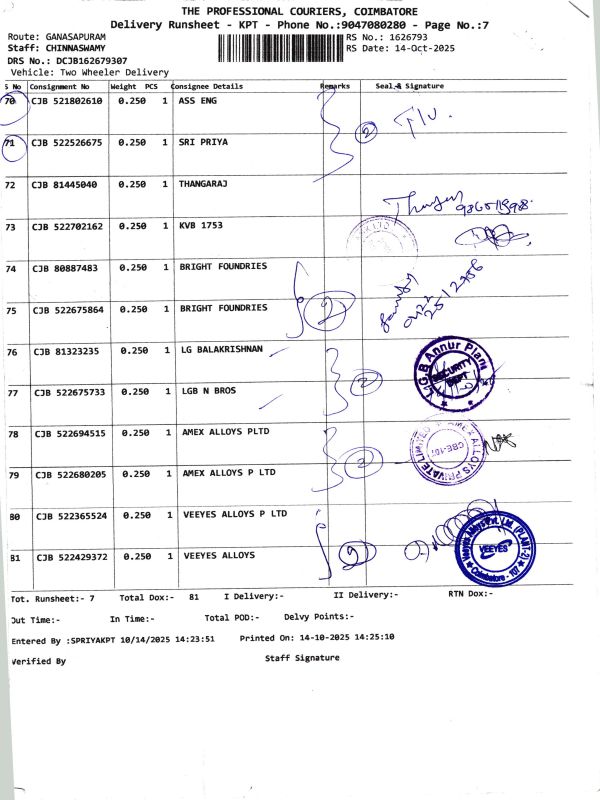 THE PROFESSIONAL COURIERS, COIMBATORE
Delivery Runsheet - KPT - Phone No.:9047080280 - Page No.:7
Route: GANASAPURAM RS No.: 1626793
Staff: CHINNASWAMY RS Date: 14-Oct-2025
DRS No.: DCJB162679307
Vehicle: Two Wheeler Delivery
S No Consignment No Weight PCS Consignee Details Remarks Seal & Signature
70 CJB 521802610 0.250 1 ASS ENG
2
71 CJB 522526675 0.250 1 SRI PRIYA
72 CJB 81445040 0.250 1 THANGARAJ
73 CJB 522702162 0.250 1 KVB 1753
74 CJB 80887483 0.250 1 BRIGHT FOUNDRIES
75 CJB 522675864 0.250 1 BRIGHT FOUNDRIES
2
76 CJB 81323235 0.250 1 LG BALAKRISHNAN
L.G.B Annur Plant
SECURITY
DEPT
77 CJB 522675733 0.250 1 LGB N BROS
2
78 CJB 522694515 0.250 1 AMEX ALLOYS PLTD
AMEX ALLOYS PRIVATE LIMITED
CBE-107
79 CJB 522680205 0.250 1 AMEX ALLOYS P LTD
2
80 CJB 522365524 0.250 1 VEEYES ALLOYS P LTD
Veeyes Alloys Pvt. Ltd. (PLANT-2)
VEEYES
Coimbatore - 107
81 CJB 522429372 0.250 1 VEEYES ALLOYS
Tot. Runsheet:- 7 Total Dox:- 81 I Delivery:- II Delivery:- RTN Dox:-
Out Time:- In Time:- Total POD:- Delvy Points:-
Entered By :SPRIYAKPT 10/14/2025 14:23:51 Printed On: 14-10-2025 14:25:10
Verified By Staff Signature